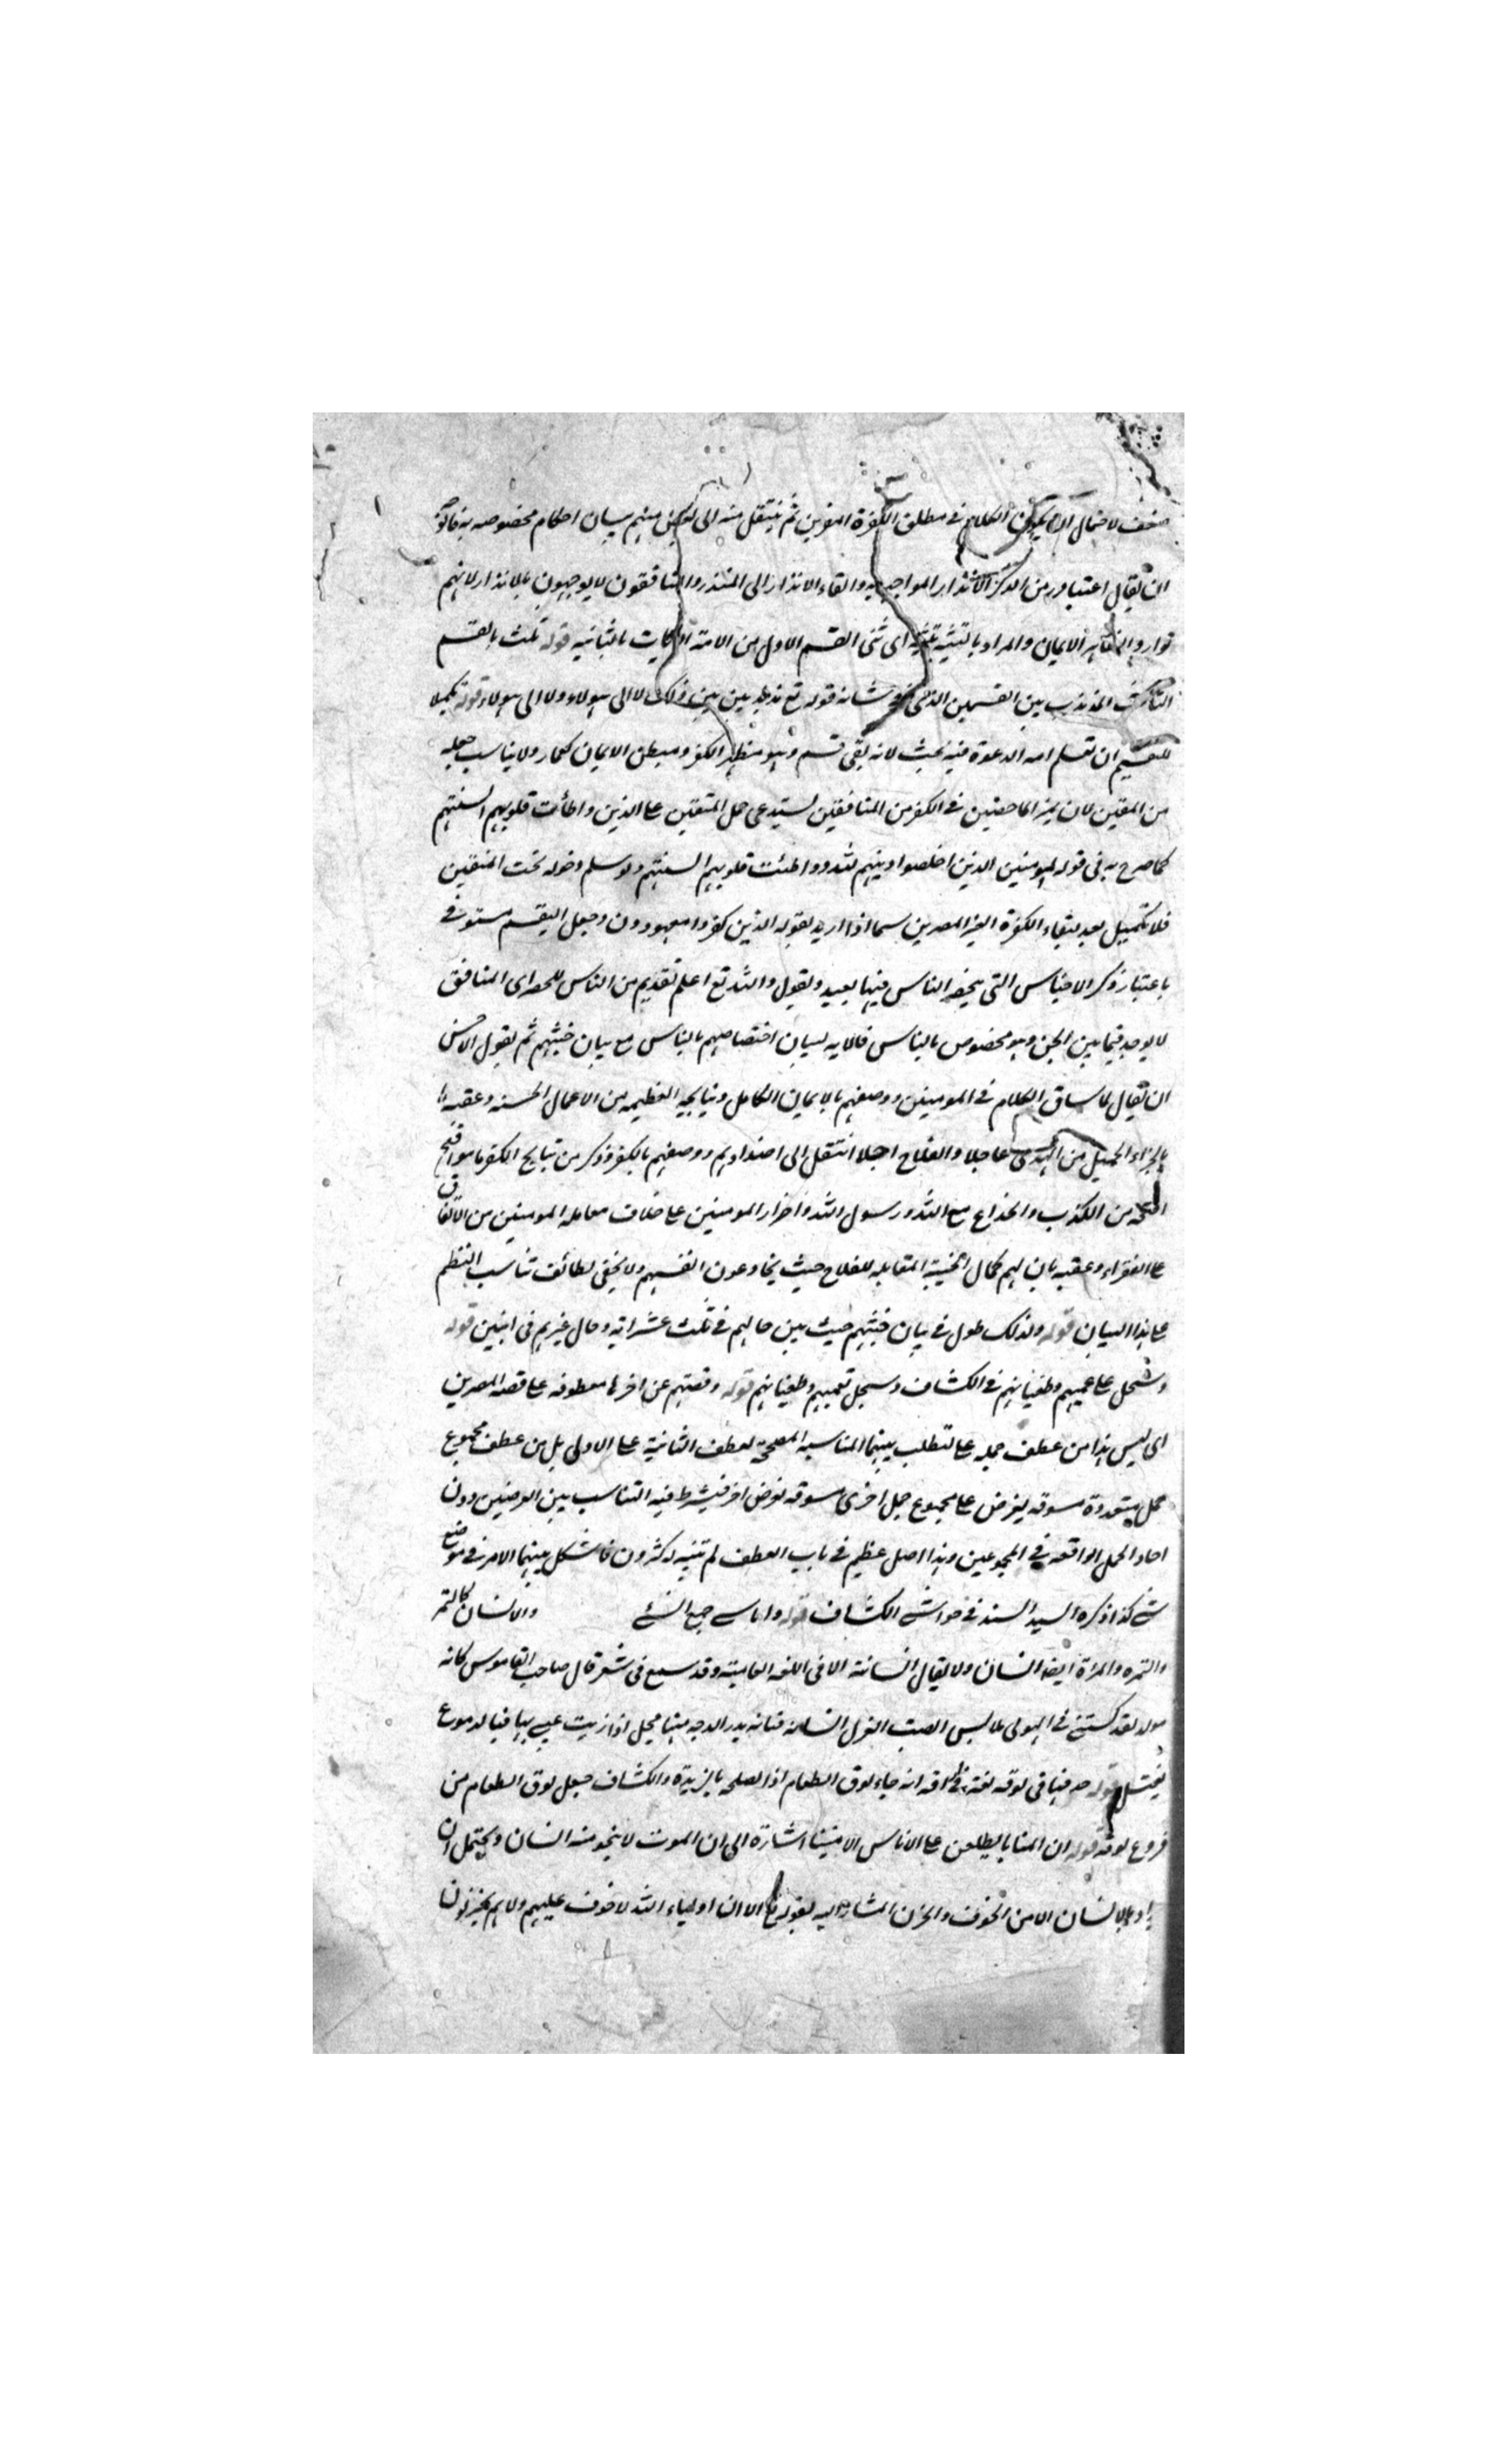 ضعف لاحتمال ان يكون الكلام في مطلق الكفرة المصرين ثم ينتقل منه الى منهم ببيان احكام مخصوصه به
ان يقال اعتبار من الانذار المواجهه والقاء الانذار الى المنذر والمنافقون لا يوجهون بالانذار لانهم
الايمان والمراد بالتثنيه اى ثنى القسم الاول من الامة بالثانيه قوله ثلث بالقسم
الثالث المذبذب بين القسمين الذى شانه قوله تع مذبذبين بين ذلك لا الى هولاء ولا الى هولاء قوله تكميلا
للتقسيم ان تعلم امه الدعوة فيه بحث لانه بقى قسم وهو مظهر الكفر ومبطن الايمان كعمار ولا يناسب جعله
من المتقين لان يميز الماحضين في الكفر من المنافقين يستدعى حمل المتقين على الذين واطأت قلوبهم السنتهم
كما صرح به في قوله المومنين الذين اخلصوا دينهم لله وواطئت قلوبهم السنتهم ولو سلم دخوله تحت المتقين
فلا تكميل بعد لبقاء الكفرة الغير المصرين سيما اذا اريد بقوله الذين كفروا معهودون وجعل التقسيم مستوفى
باعتبار ذكر الاجناس التى ينحصر الناس فيها بعيد ونقول والله تع اعلم تقديم من الناس للحصر اى المنافق
لا يوجد فيما بين الجن وهو مخصوص بالناس فالايه لبيان اختصاصهم بالناس مع بيان خبثهم ثم نقول الاحسن
ان يقال لما ساق الكلام في المومنين ووصفهم بالايمان الكامل ونتايجه العظيمه من الاعمال الحسنه وعقبه
بالجزاء الجميل من الهدى عاجلا والفلاح اجلا انتقل الى اضدادهم ووصفهم بالكفر وذكر من نتايج الكفر ما هو اقبح
من الكذب والخداع مع الله ورسول الله واضرار المومنين على خلاف معامله المومنين من الانفاق
على الفقراء وعقبه بان لهم كمال الخيبة المقابله للفلاح حيث يخادعون انفسهم ولا يخفى لطائف تناسب النظم
على هذا البيان قوله ولذلك طول في بيان خبثهم حيث بين حالهم في ثلث عشر ايه وحال غيرهم فى اثنين قوله
وسجل على عمههم وطغيانهم في الكشاف وسجل بعمههم وطغيانهم قوله وقصتهم عن اخرها معطوفه على قصه المصرين
اى ليس هذا من عطف جمله على لتطلب بينهما المناسبه المصححة لعطف الثانية على الاولى بل من عطف مجموع
جمل متعددة مسوقه لغرض على مجموع جمل اخرى مسوقه لغرض اخر فيشترط فيه التناسب بين الغرضين دون
احاد الجمل الواقعه في المجموعين وهذا اصل عظيم في باب العطف لم يتنبه له كثرون فاشكل بينهما الامر في مواضع
شتى كذا ذكره السيد السند في حواشى الكشاف قوله واناسى جمع انسى والانسان كالتمر
والتمره والمراة ايضا انسان ولا يقال انسانة الا فى اللغه العاميه وقد سمع فى شعر قال صاحب القاموس كانه
مولد لقد كستنى في الهوى ملابس الصب الغزل انسانة فتانه بدر الدجى منها خجل اذا زنت عينى بها فبالدموع
تغتسل قوله حذفها فى لوقه لغة فى الوقه انه جاء لوق الطعام اذا اصلحه بالزبدة والكشاف جعل لوق الطعام من
فروع لوقه قوله ان المنايا يطلعن على الاناس الامنينا اشارة الى ان الموت لا ينجو منه انسان ويحتمل ان
يراد بالانسان الامن الخوف والحزن المشار اليه بقوله تع الا ان اولياء الله لا خوف عليهم ولا هم يحزنون